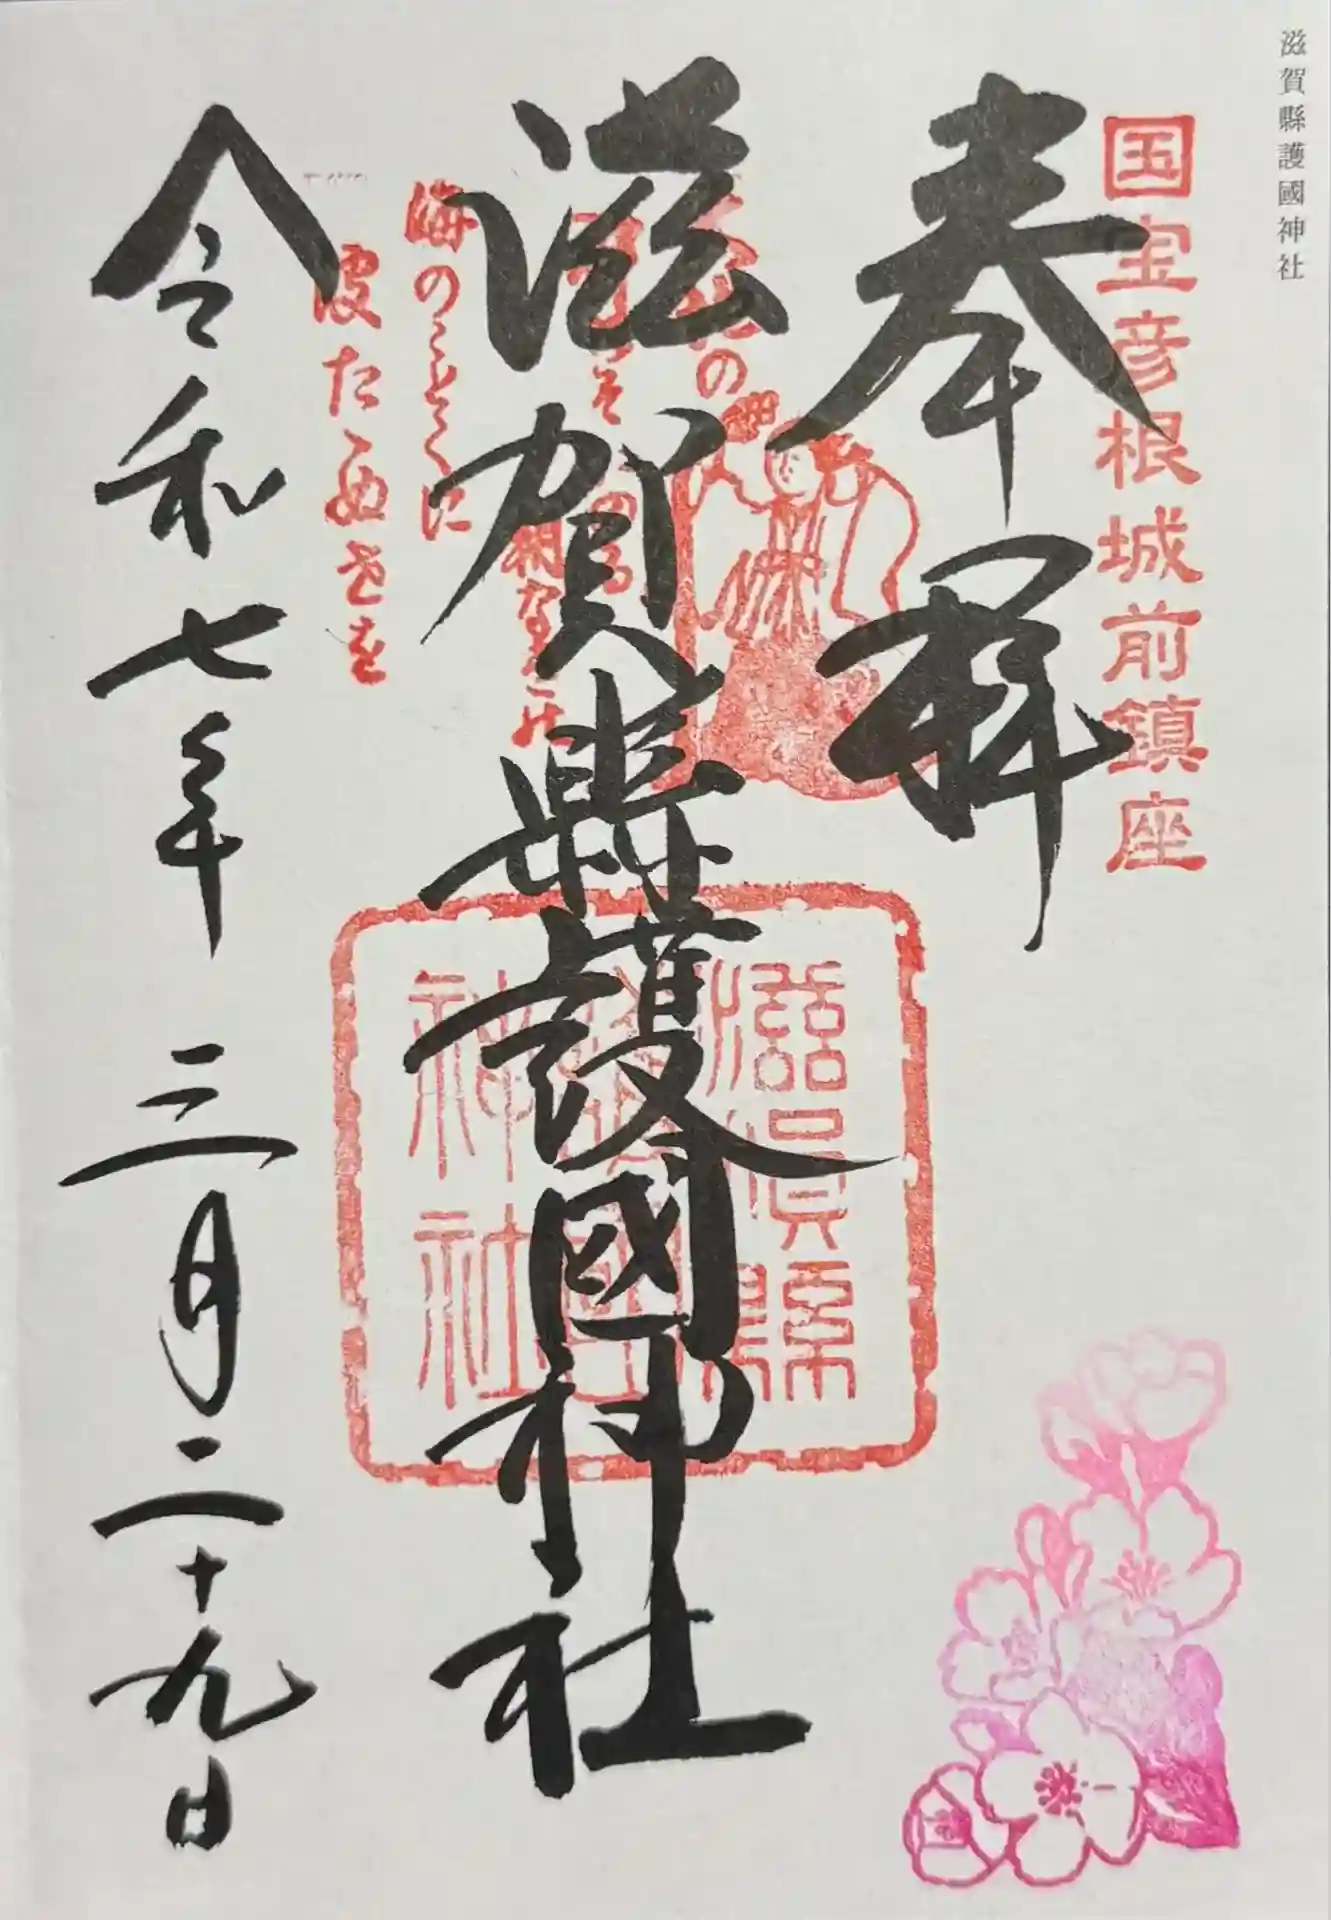 滋賀縣護國神社
国宝彦根城前鎮座
奉拝
滋賀縣護國神社
朝なぎの
海のことくに
波たたぬ世を
滋賀縣
護國
神社
令和七年三月二十九日